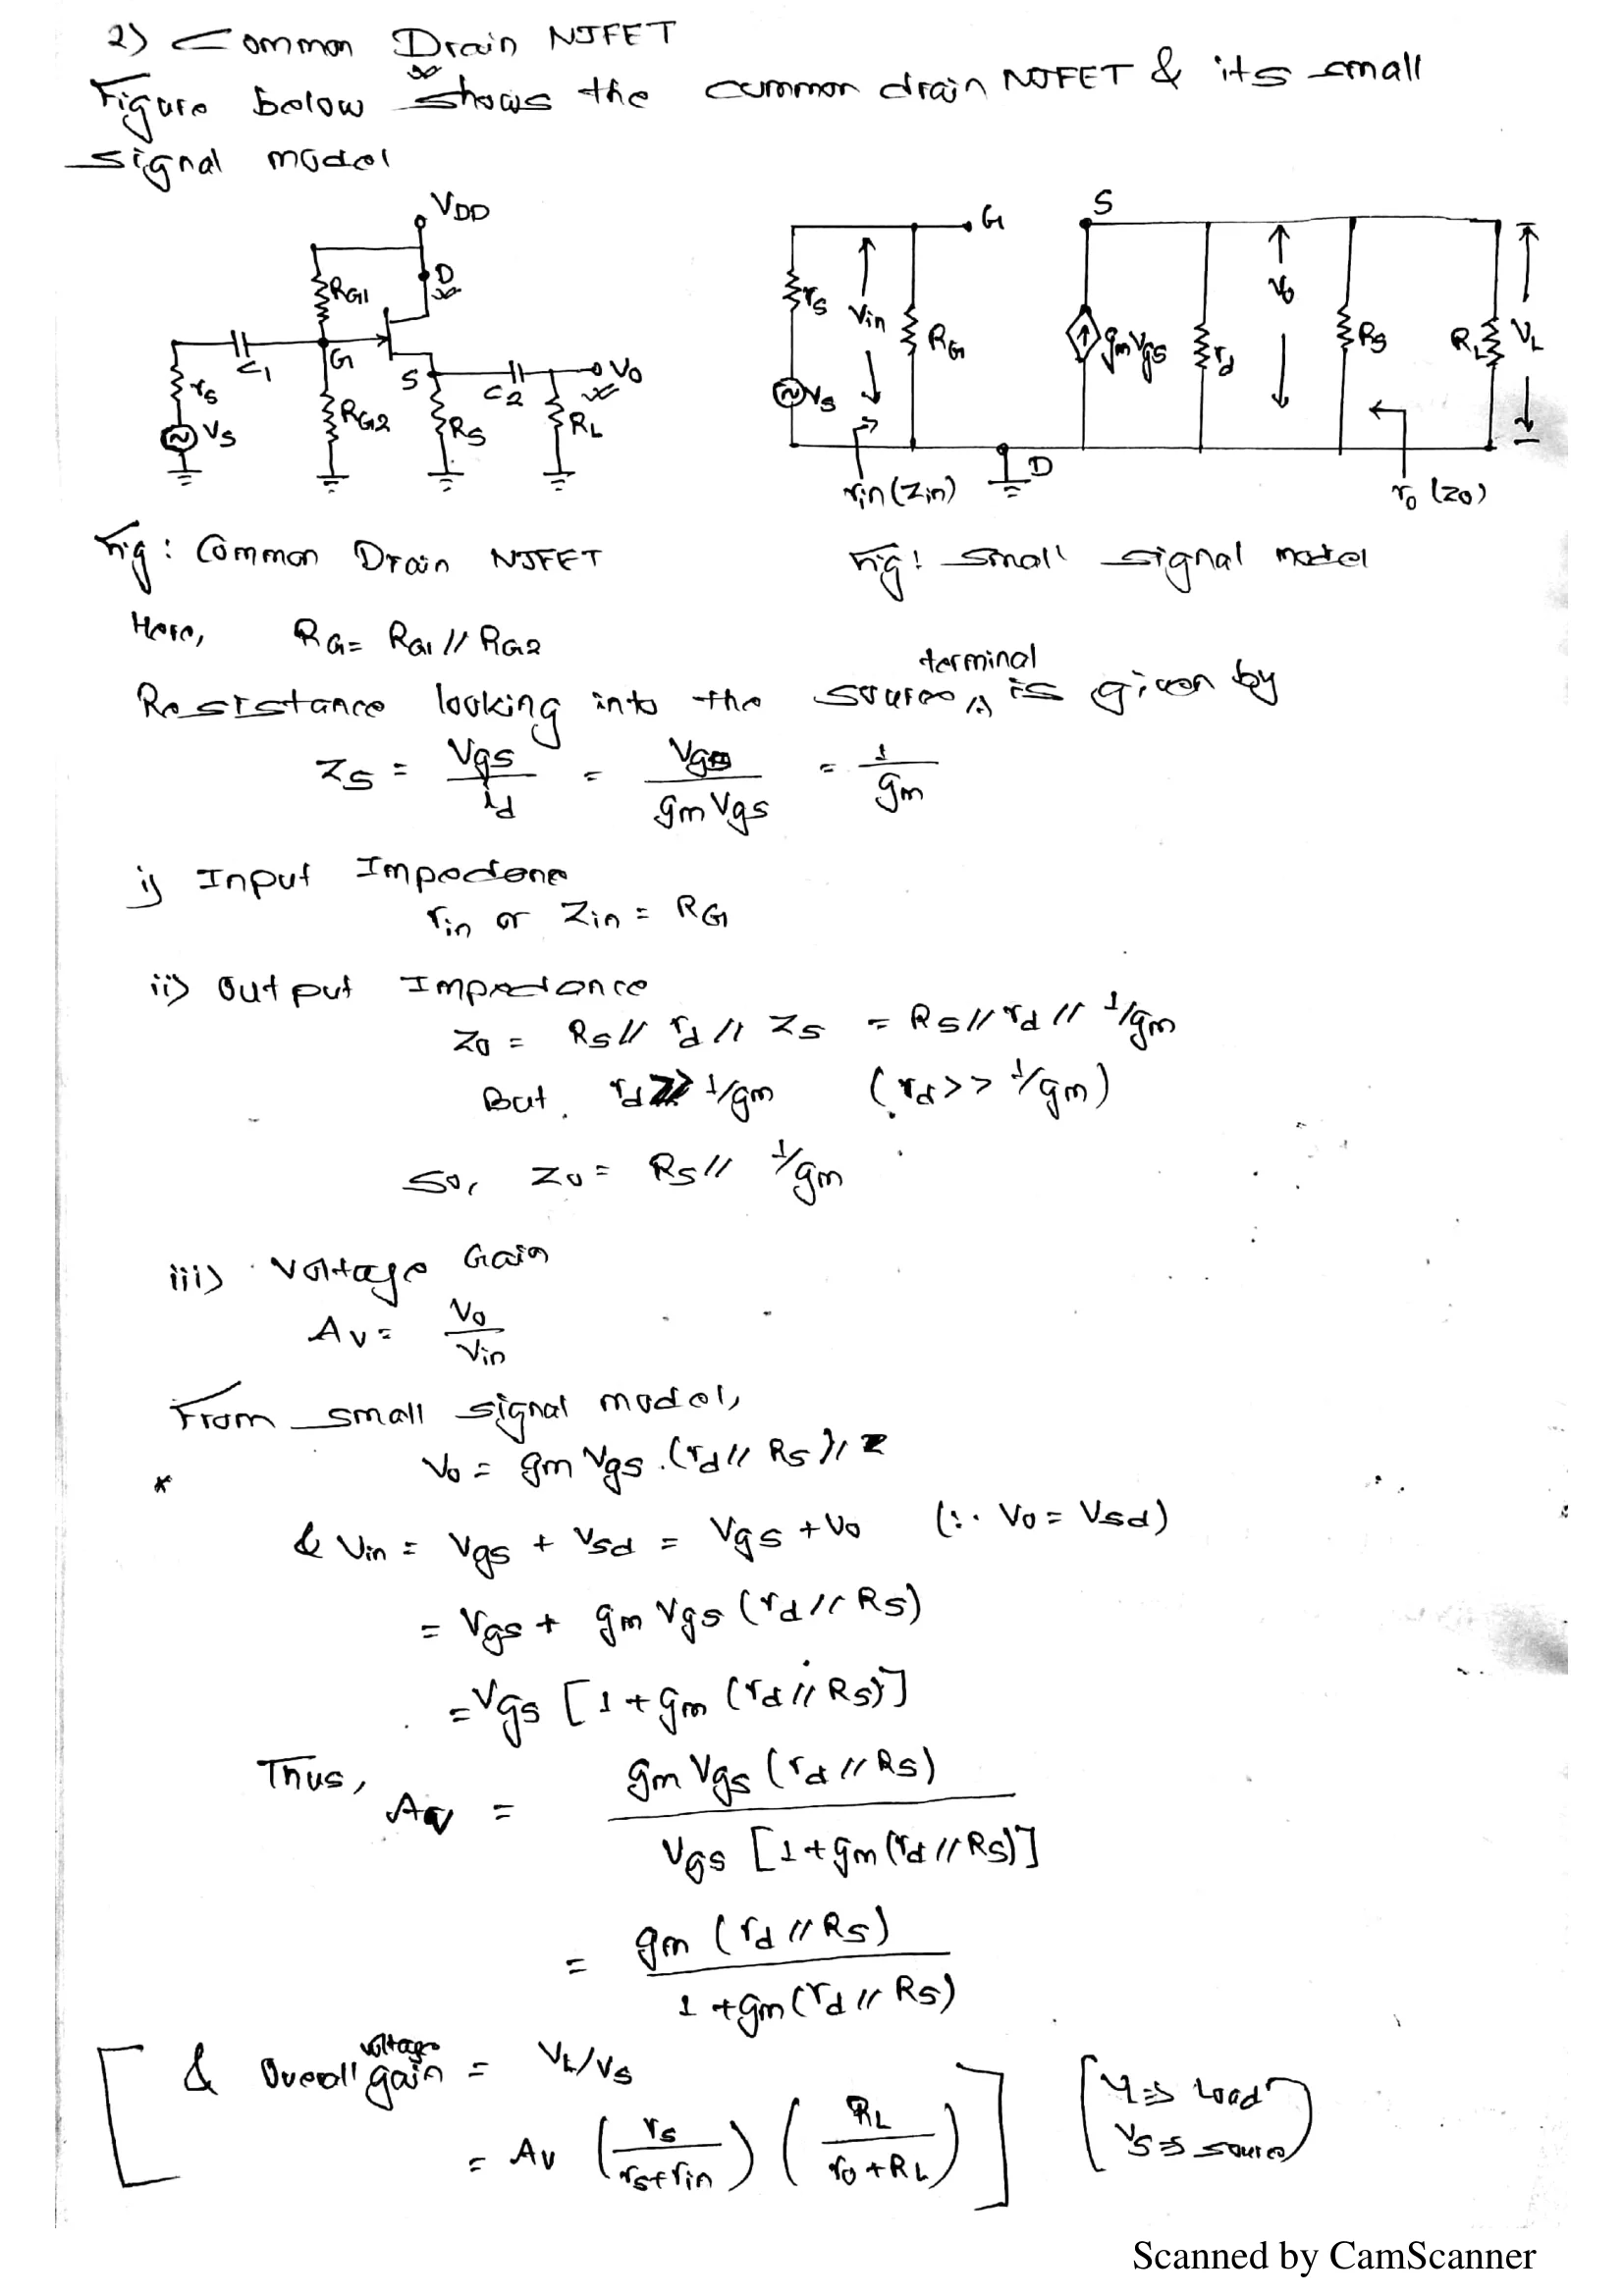 2) Common Drain NJFET
Figure below shows the common drain NJFET & its small
signal model
VDD
D
RG1
G
C1
rs
Vs
RG2
S
C2
Vo
RS
RL
G
rs
Vin
RG
Vs
rin (Zin)
D
S
gmVgs
rd
Vo
RS
RL
VL
ro (Zo)
Fig: Common Drain NJFET
Fig: Small signal model
Here, RG = RG1 // RG2
Resistance looking into the source terminal is given by
ZS = Vgs / id = Vgs / gm Vgs = 1 / gm
i) Input Impedene
rin or Zin = RG
ii) Output Impedance
Zo = RS // rd // ZS = RS // rd // 1/gm
But. rd >> 1/gm (rd >> 1/gm)
So, Zo = RS // 1/gm
iii) Voltage Gain
AV = Vo / Vin
From small signal model,
* Vo = gm Vgs . (rd // RS)
& Vin = Vgs + Vsd = Vgs + Vo (∵ Vo = Vsd)
= Vgs + gm Vgs (rd // RS)
= Vgs [1 + gm (rd // RS)]
Thus, AV = gm Vgs (rd // RS) / Vgs [1 + gm (rd // RS)]
= gm (rd // RS) / 1 + gm (rd // RS)
[& Overall voltage gain = VL/Vs
= AV (rs / rs + rin) (RL / ro + RL)]
[VL => Load
Vs => source]
Scanned by CamScanner